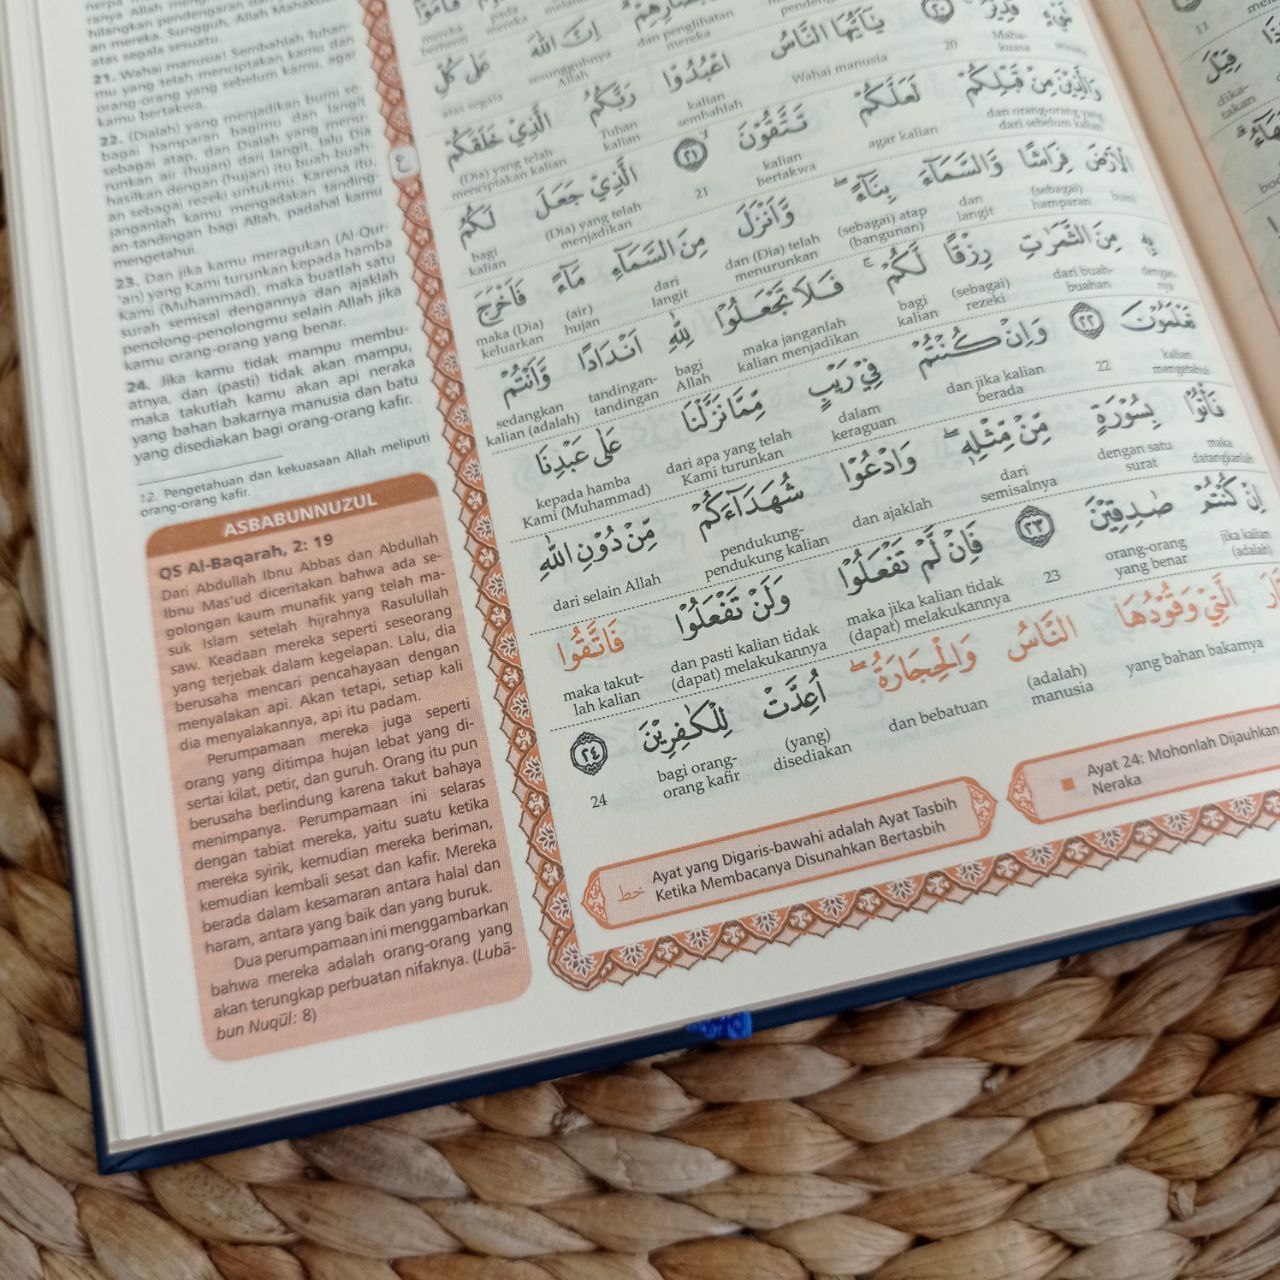 hilangkan pendengaran dan
an mereka. Sungguh, Allah Mahakuasa
atas segala sesuatu.
21. Wahai manusia! Sembahlah Tuhan-
mu yang telah menciptakan kamu dan
orang-orang yang sebelum kamu, agar
kamu bertakwa.
22. (Dialah) yang menjadikan bumi se-
bagai hamparan bagimu dan langit
sebagai atap, dan Dialah yang menu-
runkan air (hujan) dari langit, lalu Dia
hasilkan dengan (hujan) itu buah-buah-
an sebagai rezeki untukmu. Karena itu,
janganlah kamu mengadakan tanding-
an-tandingan bagi Allah, padahal kamu
mengetahui.
23. Dan jika kamu meragukan (Al-Qur-
'an) yang Kami turunkan kepada hamba
Kami (Muhammad), maka buatlah satu
surah semisal dengannya dan ajaklah
penolong-penolongmu selain Allah jika
kamu orang-orang yang benar.
24. Jika kamu tidak mampu membu-
atnya, dan (pasti) tidak akan mampu,
maka takutlah kamu akan api neraka
yang bahan bakarnya manusia dan batu
yang disediakan bagi orang-orang kafir.
12. Pengetahuan dan kekuasaan Allah meliputi
orang-orang kafir.
ASBABUNNUZUL
QS Al-Baqarah, 2: 19
Dari Abdullah Ibnu Abbas dan Abdullah
Ibnu Mas'ud diceritakan bahwa ada se-
golongan kaum munafik yang telah ma-
suk Islam setelah hijrahnya Rasulullah
saw. Keadaan mereka seperti seseorang
yang terjebak dalam kegelapan. Lalu, dia
berusaha mencari pencahayaan dengan
menyalakan api. Akan tetapi, setiap kali
dia menyalakannya, api itu padam.
Perumpamaan mereka juga seperti
orang yang ditimpa hujan lebat yang di-
sertai kilat, petir, dan guruh. Orang itu pun
berusaha berlindung karena takut bahaya
menimpanya. Perumpamaan ini selaras
dengan tabiat mereka, yaitu suatu ketika
mereka syirik, kemudian mereka beriman,
kemudian kembali sesat dan kafir. Mereka
berada dalam kesamaran antara halal dan
haram, antara yang baik dan yang buruk.
Dua perumpamaan ini menggambarkan
bahwa mereka adalah orang-orang yang
akan terungkap perbuatan nifaknya. (Lubā-
bun Nuqūl: 8)
ع
اِنَّ اللّٰهَ عَلٰى كُلِّ
dan penglihatan mereka sesungguhnya Allah atas segala
شَيْءٍ قَدِيْرٌ ٢٠ يٰٓاَيُّهَا النَّاسُ اعْبُدُوْا رَبَّكُمُ الَّذِيْ خَلَقَكُمْ
sesuatu Maha-kuasa 20 Wahai manusia kalian sembahlah Tuhan kalian (Dia) yang telah menciptakan kalian
وَالَّذِيْنَ مِنْ قَبْلِكُمْ لَعَلَّكُمْ تَتَّقُوْنَ ٢١ الَّذِيْ جَعَلَ لَكُمُ
dan orang-orang yang dari sebelum kalian agar kalian kalian bertakwa 21 (Dia) yang telah menjadikan bagi kalian
الْاَرْضَ فِرَاشًا وَّالسَّمَاۤءَ بِنَاۤءً وَّاَنْزَلَ مِنَ السَّمَاۤءِ مَاۤءً فَاَخْرَجَ
bumi (sebagai) hamparan dan langit (sebagai) atap (bangunan) dan (Dia) telah menurunkan dari langit (air) hujan maka (Dia) keluarkan
بِهٖ مِنَ الثَّمَرٰتِ رِزْقًا لَّكُمْ فَلَا تَجْعَلُوْا لِلّٰهِ اَنْدَادًا وَّاَنْتُمْ
dengan-nya dari buah-buahan (sebagai) rezeki bagi kalian maka janganlah kalian menjadikan bagi Allah tandingan-tandingan sedangkan kalian (adalah)
تَعْلَمُوْنَ ٢٢ وَاِنْ كُنْتُمْ فِيْ رَيْبٍ مِّمَّا نَزَّلْنَا عَلٰى عَبْدِنَا
kalian mengetahui 22 dan jika kalian berada dalam keraguan dari apa yang telah Kami turunkan kepada hamba Kami (Muhammad)
فَأْتُوْا بِسُوْرَةٍ مِّنْ مِّثْلِهٖ وَادْعُوْا شُهَدَاۤءَكُمْ مِّنْ دُوْنِ اللّٰهِ
maka datangkanlah dengan satu surat dari semisalnya dan ajaklah pendukung-pendukung kalian dari selain Allah
اِنْ كُنْتُمْ صٰدِقِيْنَ ٢٣ فَاِنْ لَّمْ تَفْعَلُوْا وَلَنْ تَفْعَلُوْا فَاتَّقُوا
jika kalian (adalah) orang-orang yang benar 23 maka jika kalian tidak (dapat) melakukannya dan pasti kalian tidak (dapat) melakukannya maka takut-lah kalian
الَّتِيْ وَقُوْدُهَا النَّاسُ وَالْحِجَارَةُ اُعِدَّتْ لِلْكٰفِرِيْنَ ٢٤
yang bahan bakarnya (adalah) manusia dan bebatuan (yang) disediakan bagi orang-orang kafir 24
خط
Ayat yang Digaris-bawahi adalah Ayat Tasbih
Ketika Membacanya Disunahkan Bertasbih
Ayat 24: Mohonlah Dijauhkan
Neraka
11
قِيْلَ
dika-
takan